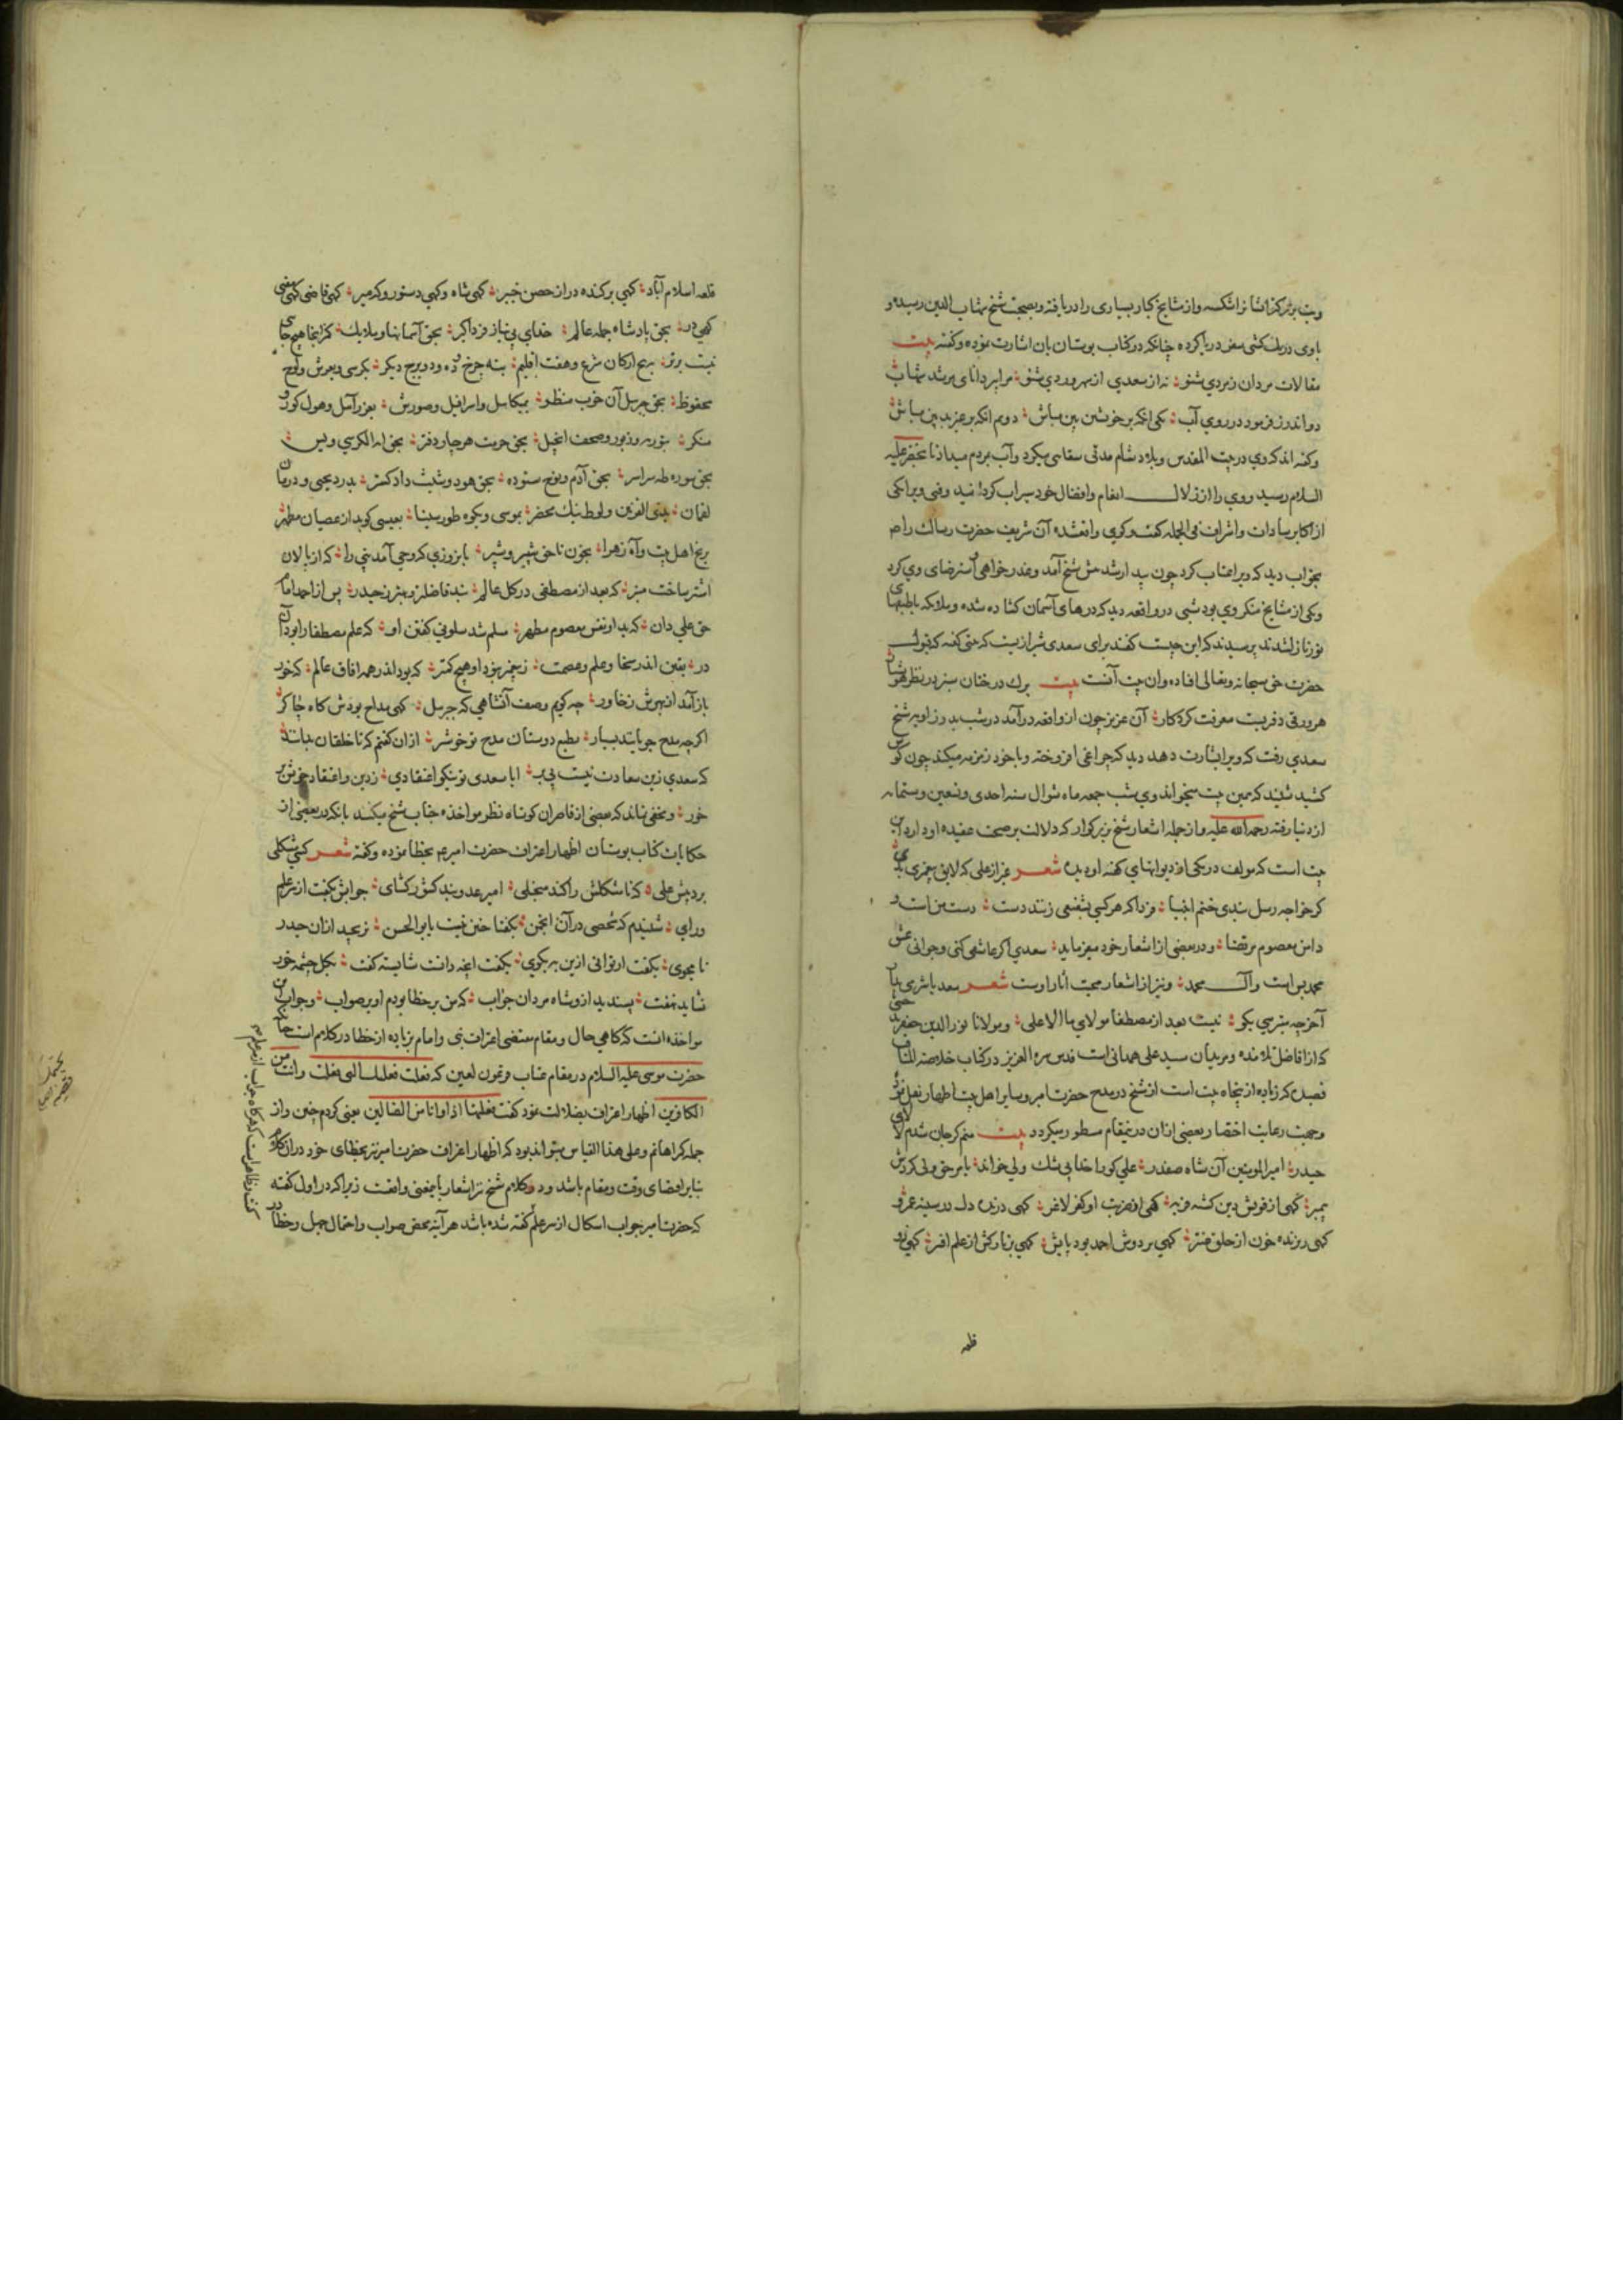 وبت بزرگ را شکسته و از مشایخ کبار بسیاری را دریافته و بصحبت شیخ شهاب الدین رسیده و
باوی در یک کشتی سفر دریا کرده چنانکه در کتاب بوستان بآن اشارت نموده و گفته بیت
مقالات مردان ز مردی شنو نه از سعدی از سهروردی شنو مرا پیر دانای مرشد شهاب
دو اندرز فرمود در روی آب یکی آنکه بر خویش بین مباش دویم آنکه بر غیر بد بین مباش
و گفته اند که وی در بیت المقدس و بلاد شام مدتی سقایی میکرد و آب بمردم میداد تا بخضر علیه
السلام رسید و وی را از زلال انعام و افضال خود سیراب گردانید وقتی ویرا با یکی
از اکابر سادات و اشراف فی الجمله گفت و گوی واقع شد آن شریف حضرت رسالت را ص
بخواب دید که ویرا عتاب کرد چون بیدار شد پیش شیخ آمد و عذر خواهی و استرضای وی کرد
و یکی از مشایخ منکر وی بود شبی در واقعه دید که درهای آسمان گشاده شده و ملائکه با طبقهای
نور نازل شدند پرسید که این چیست گفتند برای سعدی شیرازیست که بیتی گفته که قبول
حضرت حق سبحانه و تعالی افتاده و آن بیت آنست بیت برک درختان سبز در نظر هوشیار
هر ورقی دفتریست معرفت کردکار آن عزیز چون از واقعه درآمد در شب بدر زاویه شیخ
سعدی رفت که ویرا بشارت دهد دید که چراغی افروخته و با خود زمزمه میکند چون گوش
کشید شنید که همین بیت میخواند وی شب جمعه ماه شوال سنه احدی و تسعین و ستمایه
از دنیا رفته رحمه الله علیه و از جمله اشعار شیخ بزرگوار که دلالت بر صحت عقیده او دارد این
بیت است که مولف در یکی از دیوانهای کهنه او دیده شعر غیر از علی که لایق پیغمبری بدی
گر خواجه رسل نبدی ختم انبیا فردا که هر کسی بشفیعی زنند دست دست منست و
دامن معصوم مرتضا و در بعضی از اشعار خود میفرماید سعدی اگر عاشقی کنی و جوانی عشق
محمد بس است و آل محمد و نیز از اشعار محبت آثار اوست شعر سعدیا شرمی بدار
آخر چه میترسی بگو نیست بعد از مصطفا مولای ما الا علی و مولانا نور الدین جعفر بدخشی
که از افاضل تلامذه و مریدان سید علی همدانی است قدس سره العزیز در کتاب خلاصة المناقب
قصیده که زیاده از پنجاه بیت است از شیخ در مدح حضرت امیر و سایر اهل بیت اظهار نقل نموده
و جهت رعایت اختصار بعضی از آن در نیمقام مسطور میگردد بیت منم کز جان شدم مولای
حیدر امیر المومنین آن شاه صفدر علی کورا خدا بی شک ولی خواند بامر حق ولی کردش
پیمبر گهی از قوتش دین گشته فربه گهی از ضربت او کفر لاغر گهی درنده دل در سینه عمرو
گهی ریزنده خون از حلق عنتر گهی بر دوش احمد بود پایش گهی بر تارکش از علم افسر گهی در
قلعه
قلعه اسلام آباد گهی برکنده در از حصن خیبر گهی شاه و گهی دستور و که میر گهی قاضی گهی مفتی
گهی در بحق پادشاه جمله عالم خدای بی نیاز فرد اکبر بحق آسمانها و ملایک کز اینجا هیچ جایی
نیست برتر به پنج ارکان شرع و هفت اقلیم بنه چرخ و ده و دو برج دیگر بکرسی و بعرش و لوح
محفوظ بحق جبرئیل آن خوب منظر بمیکائیل و اسرافیل و صورش بعزرائیل و هول گور و
منکر بتوریة و زبور و صحف انجیل بحق حرمت هر چار دفتر بحق آیة الکرسی و یس
بحق سوره طه سراسر بحق آدم و نوح ستوده بحق هود و شیث دادگستر بدرد یحیی و درمان
لقمان بذی القرنین و لوط نیک محضر بموسی و بکوه طور سینا بعیسی کو بد از عصیان مطهر
برنج اهل بیت و آه زهرا بخون ناحق شبیر و شبر بآن روزی که وحی آمد نبی را که از پالان
اشتر ساخت منبر که بعد از مصطفی در کل عالم نبد فاضلتر و بهتر ز حیدر پس از احمد امام
حق علی دان که بد او نفس معصوم مطهر مسلم شد سلونی گفتن او را که علم مصطفا را بود آن
در یقین اندر سخا و علم و عصمت ز پیغمبر نبود او هیچ کمتر که بود اندر همه آفاق عالم که خور
باز آمد از بهرش ز خاور چه گویم وصف آن شاهی که جبریل گهی مداح بودش گاه چاکر
اگر چه مدح جو باشد بسیار بطبع دوستان مدح تو خوشتر از آن گفتم که تا خلقان بدانند
که سعدی زین سعادت نیست بی بر ایا سعدی تو نیکو اعتقادی ز دین و اعتقاد خویش بر
خور و مخفی نماند که بعضی از قاصران کوتاه نظر مواخذه جناب شیخ میکنند بآنکه در بعضی از
حکایات کتاب بوستان اظهار اعتراف حضرت امیر ع بخطا نموده و گفته شعر کسی مشکلی
برد پیش علی که تا مشکلش را کند منجلی امیر عدو بند کشور گشای جوابش بگفت از سر علم
و رای شنیدم که شخصی در آن انجمن بگفتا چنین نیست یا بو الحسن نرنجید از آن حیدر
نامجوی بگفت ار توانی ازین به بگوی بگفت آنچه دانست شایسته گفت بگل چشمه خور
نشاید نهفت پسندید ازو شاه مردان جواب که من بر خطا بودم او بر صواب و جواب این
مواخذه آنست که گاهی حال و مقام مقتضی اعتراف نبی و امام بزیاده از خطا در کلام است چنانکه
حضرت موسی علیه السلام در مقام عتاب فرعون لعین که فعلت فعلتک التی فعلت و انت من
الکافرین اظهار اعتراف بضلالت نمود گفت فعلتها اذا و انا من الضالین یعنی کردم چنین و از
جمله گمراهانم و علی هذا القیاس میتواند بود که اظهار اعتراف حضرت امیر نیز بخطای خود در آن کلام
بنابر اقتضای وقت و مقام باشد و در کلام شیخ نیز اشعار باینمعنی واقعست زیرا که در اول گفته
که حضرت امیر جواب اشکال از سر علم گفته شده باشد هر آینه محض صواب و احتمال جهل و خطا در